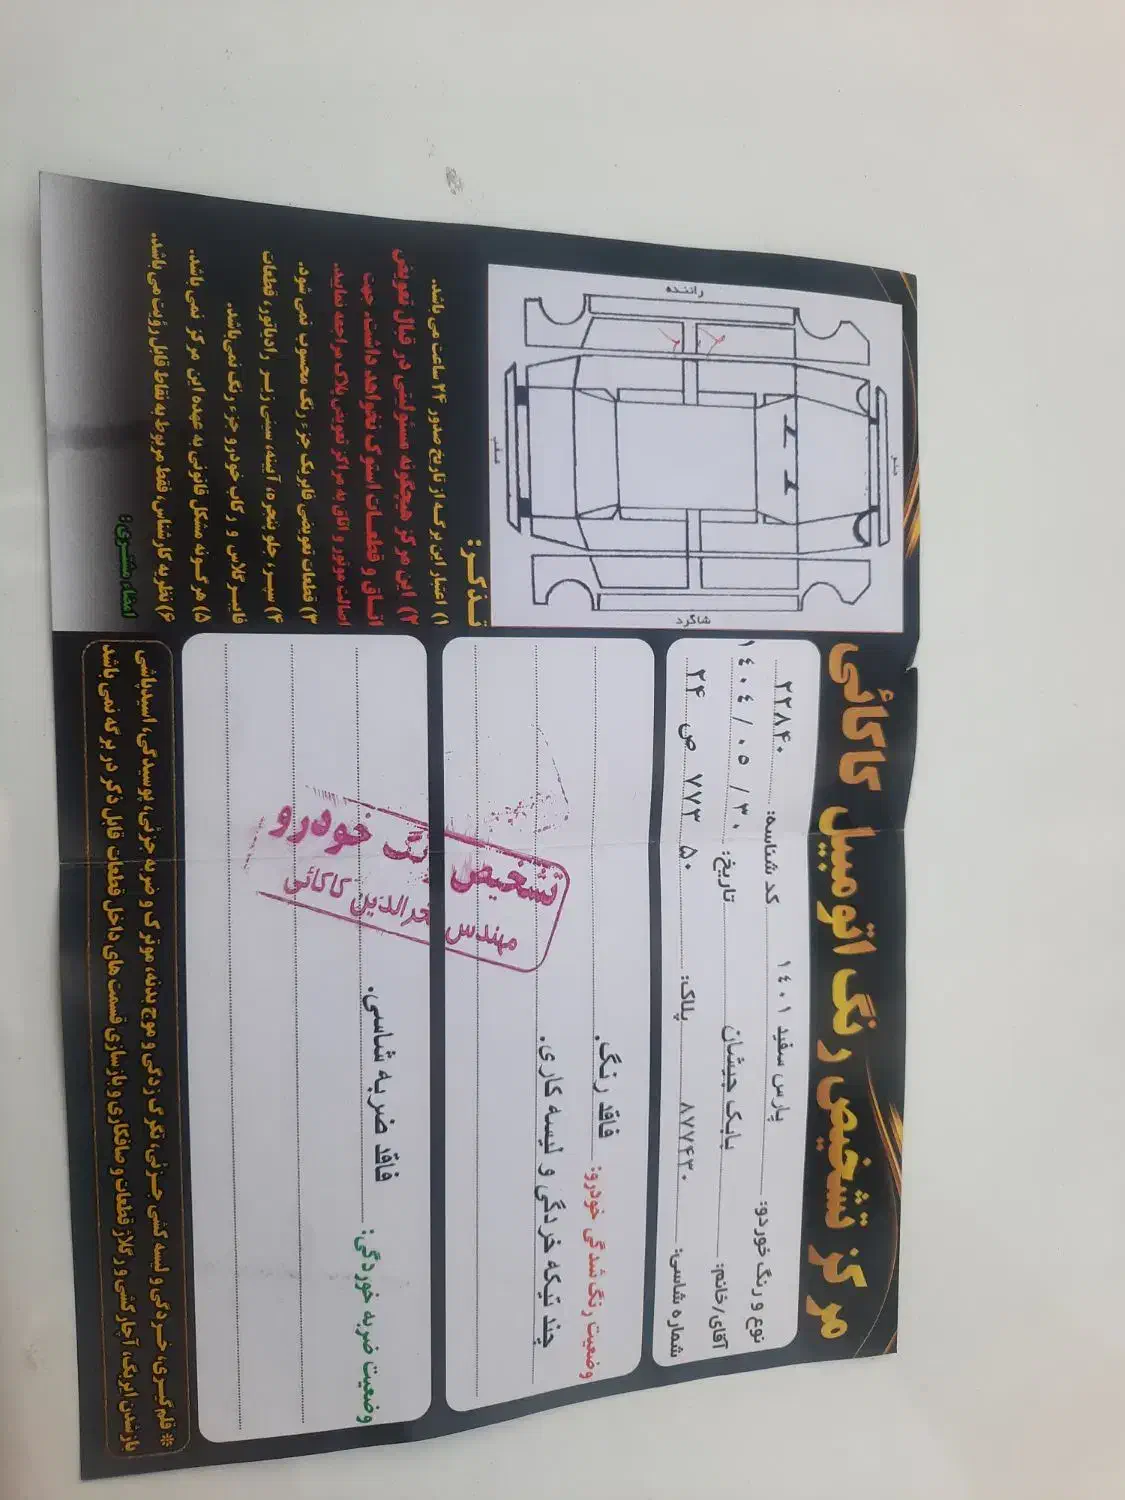 مرکز تشخیص رنگ اتومبیل کاکائی
نوع و رنگ خوردو: پارس سفید ۱۴۰۱ کد شناسه: ۲۲۸۴۰
آقای/خانم: بابک جیشان تاریخ: ۱۴۰۴/۰۵/۳۰
شماره شاسی: ۸۷۷۴۳۰ پلاک: ۵۰ ۷۷۳ ص ۲۴
وضعیت رنگ شدگی خودرو: فاقد رنگ.
چند تیکه خردگی و لیسه کاری.
وضعیت ضربه خوردگی: فاقد ضربه شاسی.
تشخیص رنگ خودرو
مهندس فخرالدین کاکائی
راننده
شاگرد
تذکر:
۱) اعتبار این برگه از تاریخ صدور ۲۴ ساعت می باشد.
۲) این مرکز هیچگونه مسئولیتی در قبال تعویض
اتاق و قطعات استوک نخواهد داشت. جهت
اصالت موتور و اتاق به مراکز تعویض پلاک مراجعه نمایید.
۳) قطعات تعویضی فابریک جزء رنگ محسوب نمی شود.
۴) سپر، جلو پنجره، آیینه، سینی زیر رادیاتور، قطعات
فایبرگلاس و رکاب خودرو جزء رنگ نمی‌باشد.
۵) هرگونه مشکل قانونی به عهده این مرکز نمی باشد.
۶) نظریه کارشناس، فقط مربوط به نقاط قابل رؤیت می باشد.
امضاء مشتری:
* قلم گیری، خردگی و لیسه کشی جزئی، تگرگ زدگی و موج بدنه، موترک و ضربه جزئی، پوسیدگی، اسیدپاشی
باز شدن ایربگ، آچارکشی و رگلاژ قطعات و صافکاری و بازسازی قسمت های داخل قطعات قابل ذکر در برگه نمی باشد